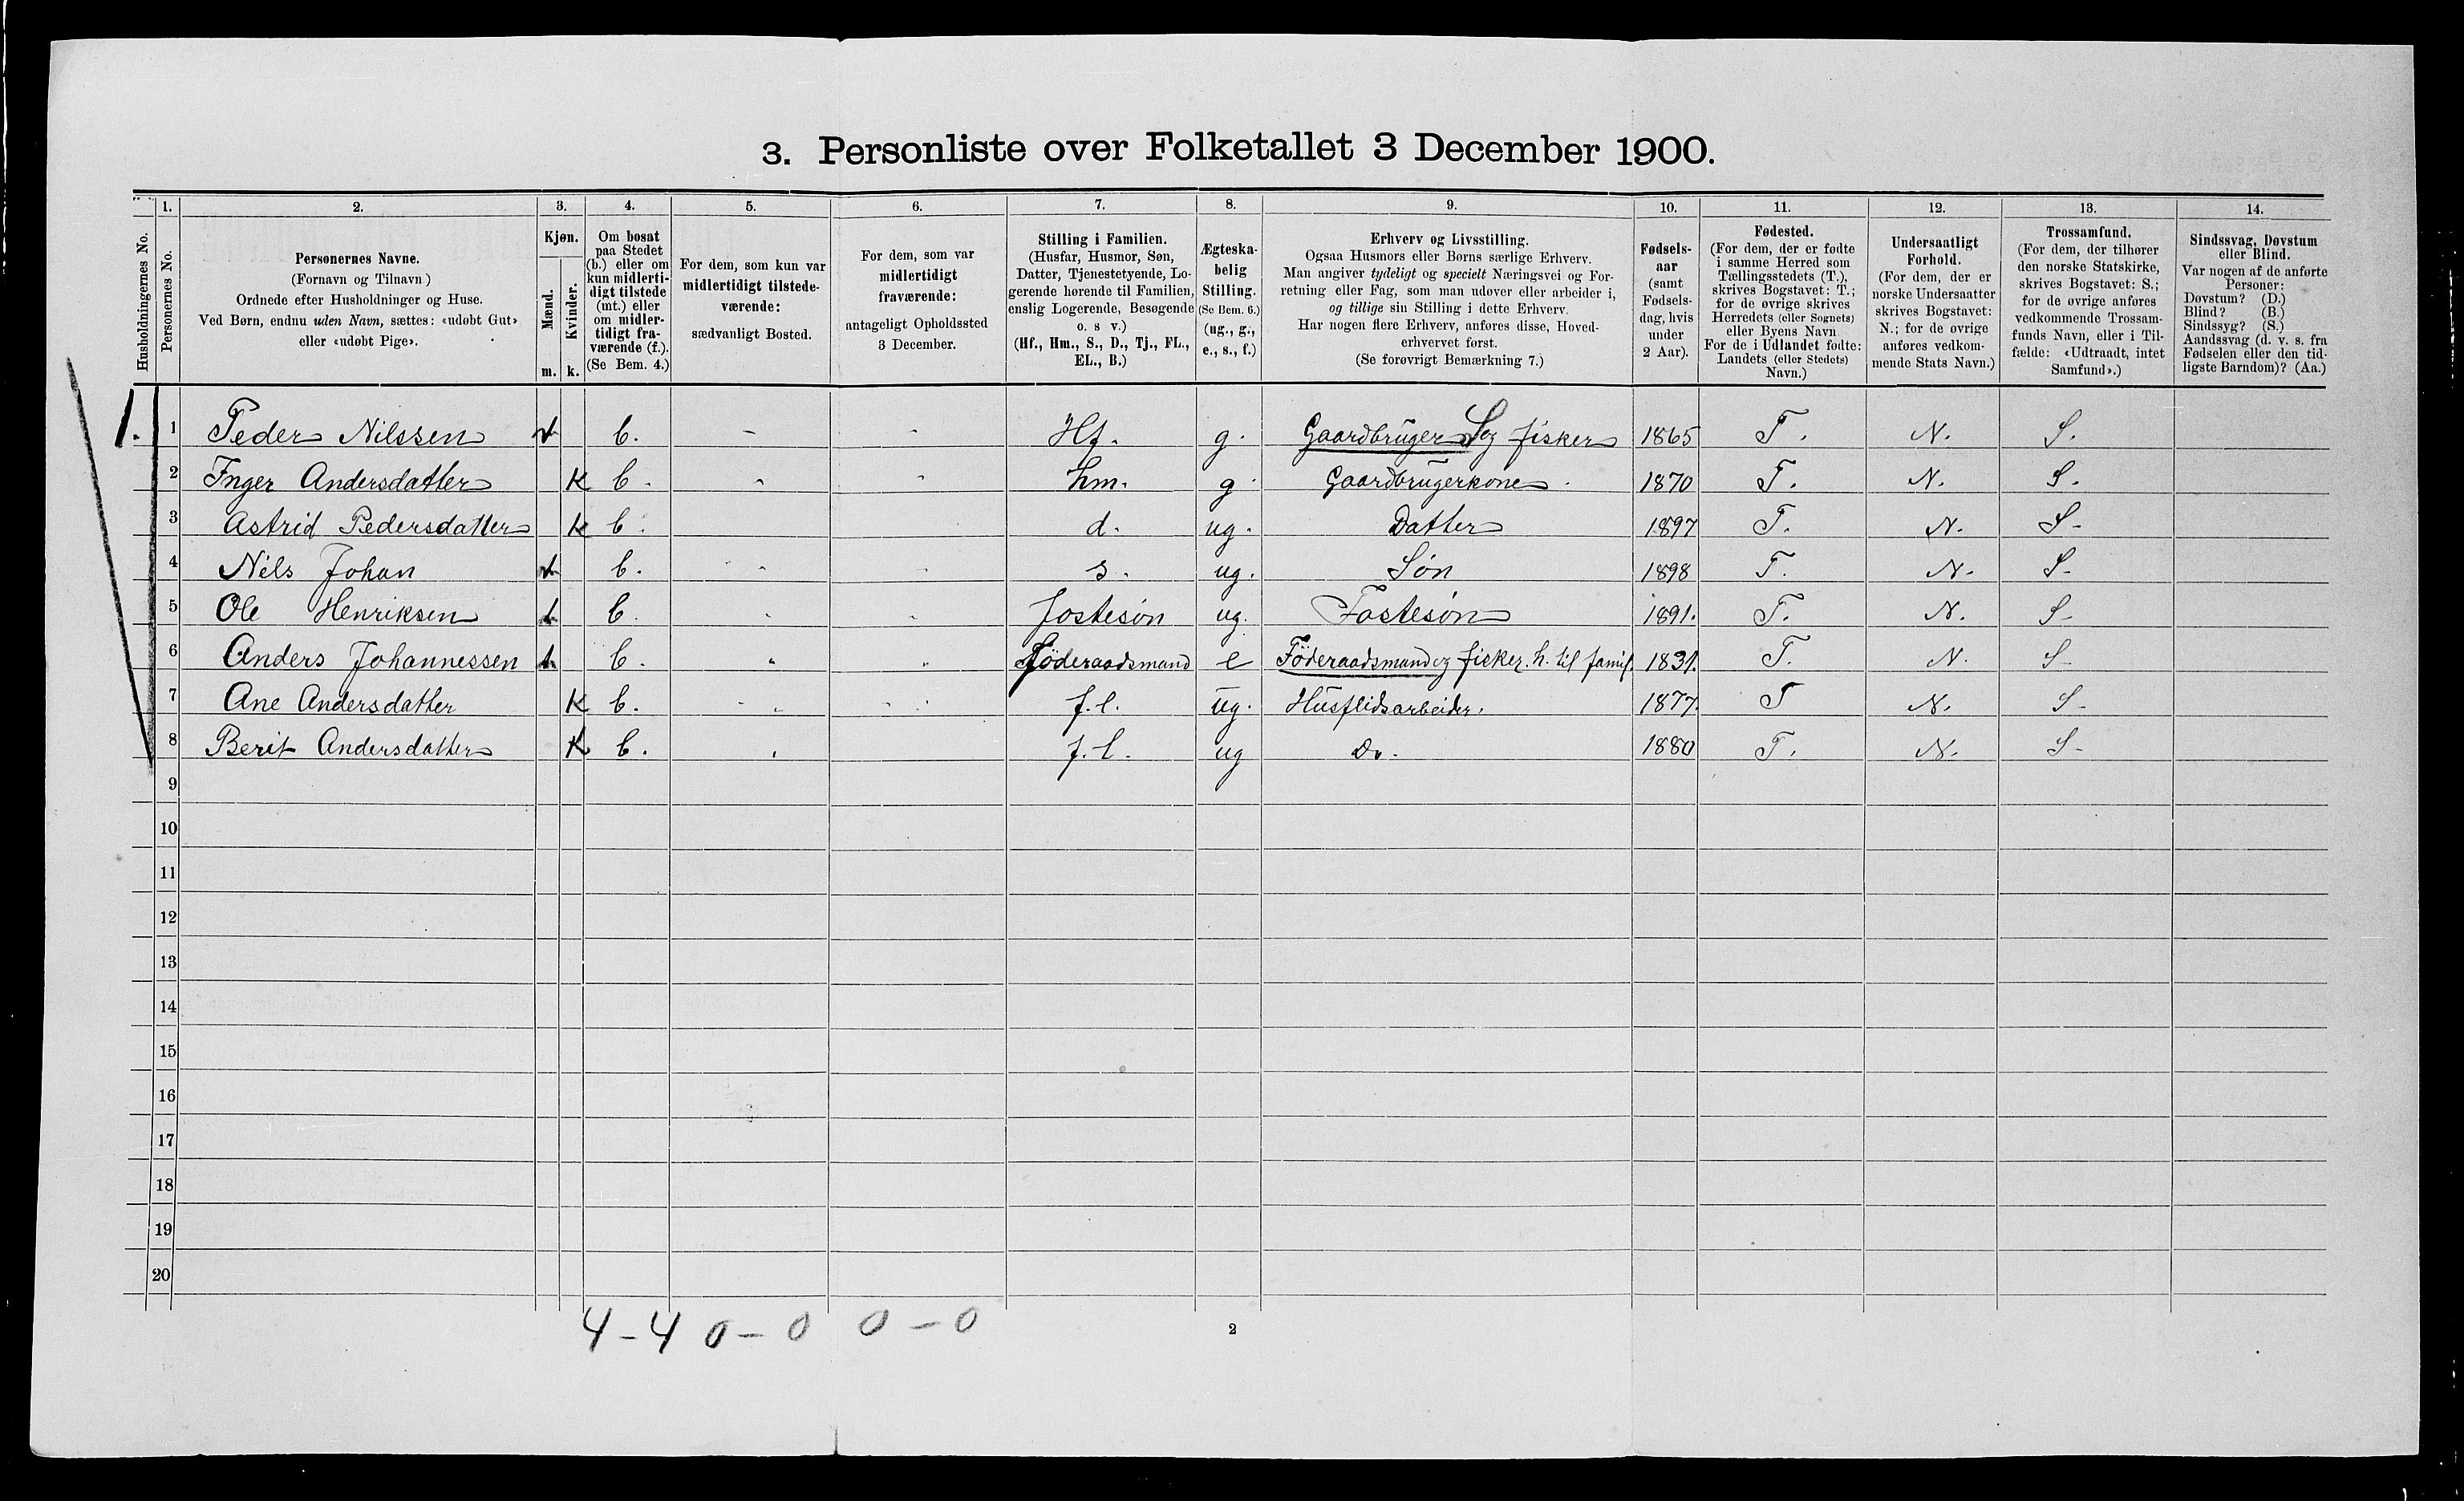 3. Personliste over Folketallet 3 December 1900.
Husholdningernes No.
1. Personernes No.
2. Personernes Navne.
(Fornavn og Tilnavn)
Ordnede efter Husholdninger og Huse.
Ved Børn, endnu uden Navn, sættes: «udøbt Gut»
eller «udøbt Pige».
3. Kjøn.
Mænd. m.
Kvinder. k.
4. Om bosat
paa Stedet
(b.) eller om
kun midlerti-
digt tilstede
(mt.) eller
om midler-
tidigt fra-
værende (f.).
(Se Bem. 4.)
5. For dem, som kun var
midlertidigt tilstede-
værende:
sædvanligt Bosted.
6. For dem, som var
midlertidigt
fraværende:
antageligt Opholdssted
3 December.
7. Stilling i Familien.
(Husfar, Husmor, Søn,
Datter, Tjenestetyende, Lo-
gerende hørende til Familien,
enslig Logerende, Besøgende
o. s v.)
(Hf., Hm., S., D., Tj., FL.,
EL., B.)
8. Ægteska-
belig
Stilling.
(Se Bem. 6.)
(ug., g.,
e., s., f.)
9. Erhverv og Livsstilling.
Ogsaa Husmors eller Børns særlige Erhverv.
Man angiver tydeligt og specielt Næringsvei og For-
retning eller Fag, som man udøver eller arbeider i,
og tillige sin Stilling i dette Erhverv.
Har nogen flere Erhverv, anføres disse, Hoved-
erhvervet først.
(Se forøvrigt Bemærkning 7.)
10. Fødsels-
aar
(samt
Fødsels-
dag, hvis
under
2 Aar).
11. Fødested.
(For dem, der er fødte
i samme Herred som
Tællingsstedets (T.),
skrives Bogstavet: T.;
for de øvrige skrives
Herredets (eller Sognets)
eller Byens Navn
For de i Udlandet fødte:
Landets (eller Stedets)
Navn.)
12. Undersaatligt
Forhold.
(For dem, der er
norske Undersaatter
skrives Bogstavet:
N.; for de øvrige
anføres vedkom-
mende Stats Navn.)
13. Trossamfund.
(For dem, der tilhører
den norske Statskirke,
skrives Bogstavet: S.;
for de øvrige anføres
vedkommende Trossam-
funds Navn, eller i Til-
fælde: «Udtraadt, intet
Samfund».)
14. Sindssvag, Døvstum
eller Blind.
Var nogen af de anførte
Personer:
Døvstum? (D.)
Blind? (B.)
Sindssyg? (S.)
Aandssvag (d. v. s. fra
Fødselen eller den tid-
ligste Barndom)? (Aa.)
1. 1 Peder Nilssen b. - - Hf. g. Gaardbruger S og fisker 1865 T. N. S.
2 Inger Andersdatter K b. - - hm. g. Gaardbrugerkone 1870 T. N. S.
3 Astrid Pedersdatter K b. d. ug. Datter 1897 T. N. S.
4 Nils Johan b. s. ug. Søn 1898 T. N. S.
5 Ole Henriksen b. fostesøn ug. Fostesøn 1891. T. N. S.
6 Anders Johannessen b. Föderaadsmand e Föderaadsmand og fisker. h. til famil. 1831. T. N. S.
7 Ane Andersdatter K b. f.l. ug. Husflidsarbeider. 1877. T N. S.
8 Berit Andersdatter K b. f.l. ug Do. 1880 T. N. S.
9
10
11
12
13
14
15
16
17
18
19
20
4-4 0-0 0-0
2